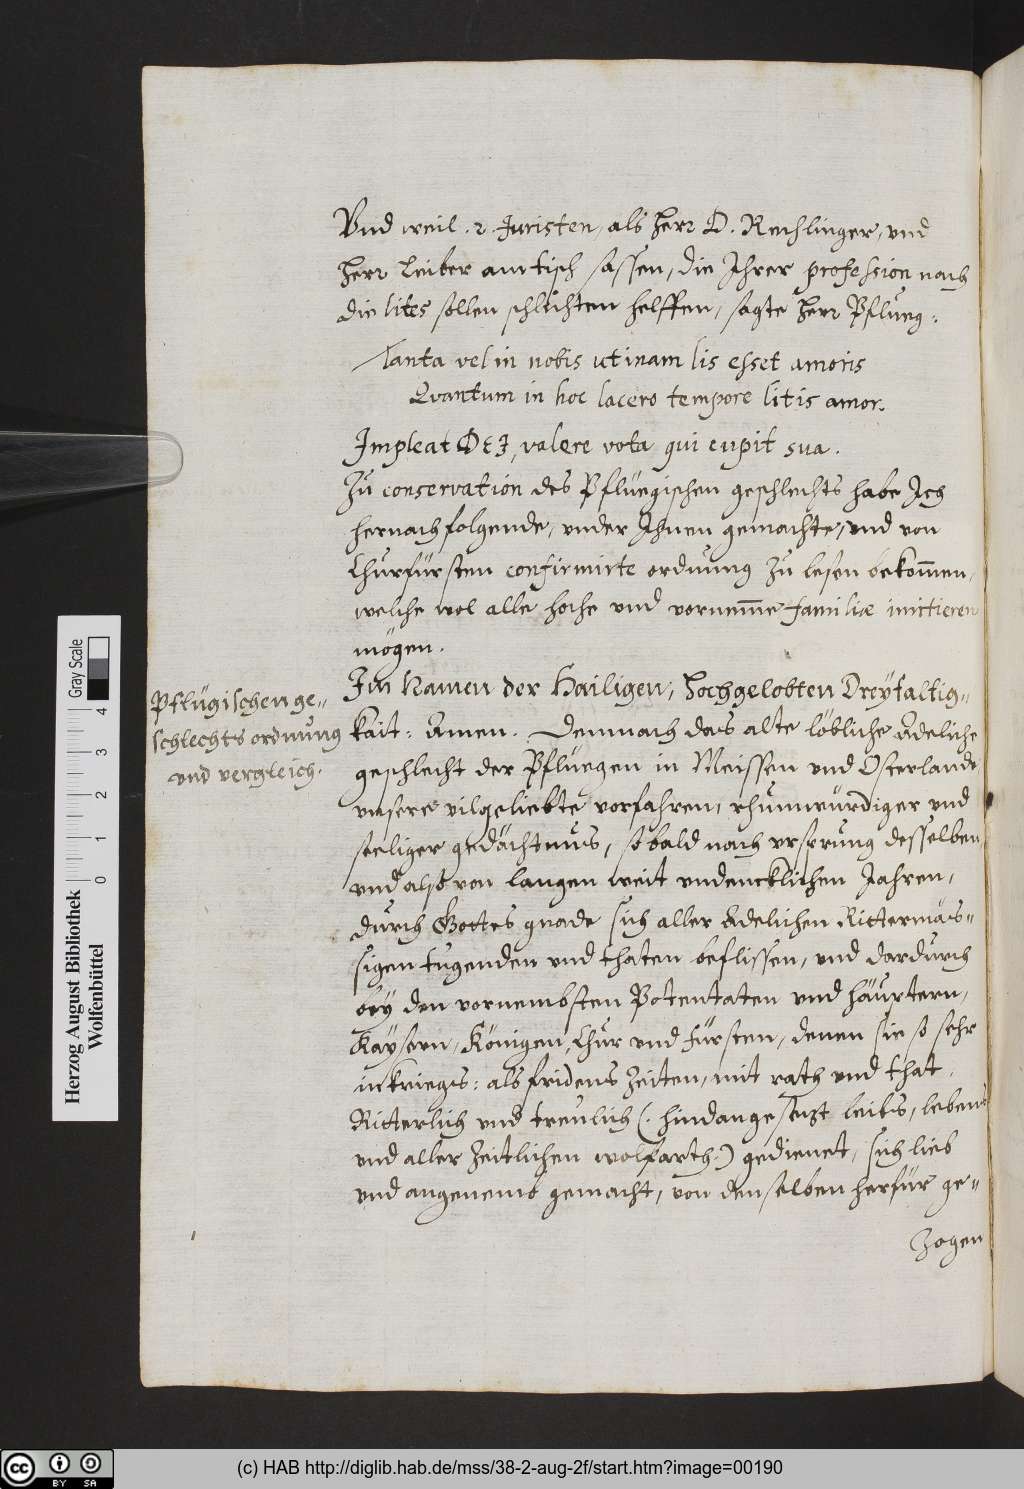 Vnd weil .2. Juristen, als Herr D. Rechlinger, vnd
Herr Leiber am tisch sassen, die Ihrer profession nach
die lites sollen schlichten helffen, sagte Herr Pflueg:
Tanta vel in nobis utinam lis esset amoris
Quantum in hoc lacero tempore litis amor.
Impleat DEJ, valere vota qui cupit sua.
Zu conservation des Pfluegischen geschlechts habe Ich
hernachfolgende, vnder Ihnen gemachte, vnd von
Churfürsten confirmirte ordnung zu lesen bekom̄en,
welche wol alle hohe vnd vornem̄e familiæ imitieren
mögen.
Pflügischen ge-
schlechts ordnung
vnd vergleich.
Im Namen der Hailigen, Hochgelobten Dreyfaltig-
kait: Amen. Demnach das alte löbliche Adeliche
geschlecht der Pfluegen in Meissen vnd Osterlande
vnsere vilgeliebte vorfahren, rhumwürdiger vnd
seeliger gedächtnus, so bald nach vrsprung desselben,
vnd also von langen weit vndencklichen Jahren,
durch Gottes gnade sich aller Adelichen Rittermäs-
sigen tugenden vnd thaten beflissen, vnd dardurch
bey den vornembsten Potentaten vnd häuptern,
Kaysern, Königen, Chur vnd Fürsten, denen sie so sehr
in kriegs: als fridens Zeiten, mit rath vnd that,
Ritterlich vnd treulich (: hindangesetzt leibs, lebens
vnd aller Zeitlichen wolfarth:) gedienet, sich lieb
vnd angenemb gemacht, von denselben herfür ge-
zogen
Herzog August Bibliothek
Wolfenbüttel
0 1 2 3 4
Gray Scale
cc BY SA
(c) HAB http://diglib.hab.de/mss/38-2-aug-2f/start.htm?image=00190